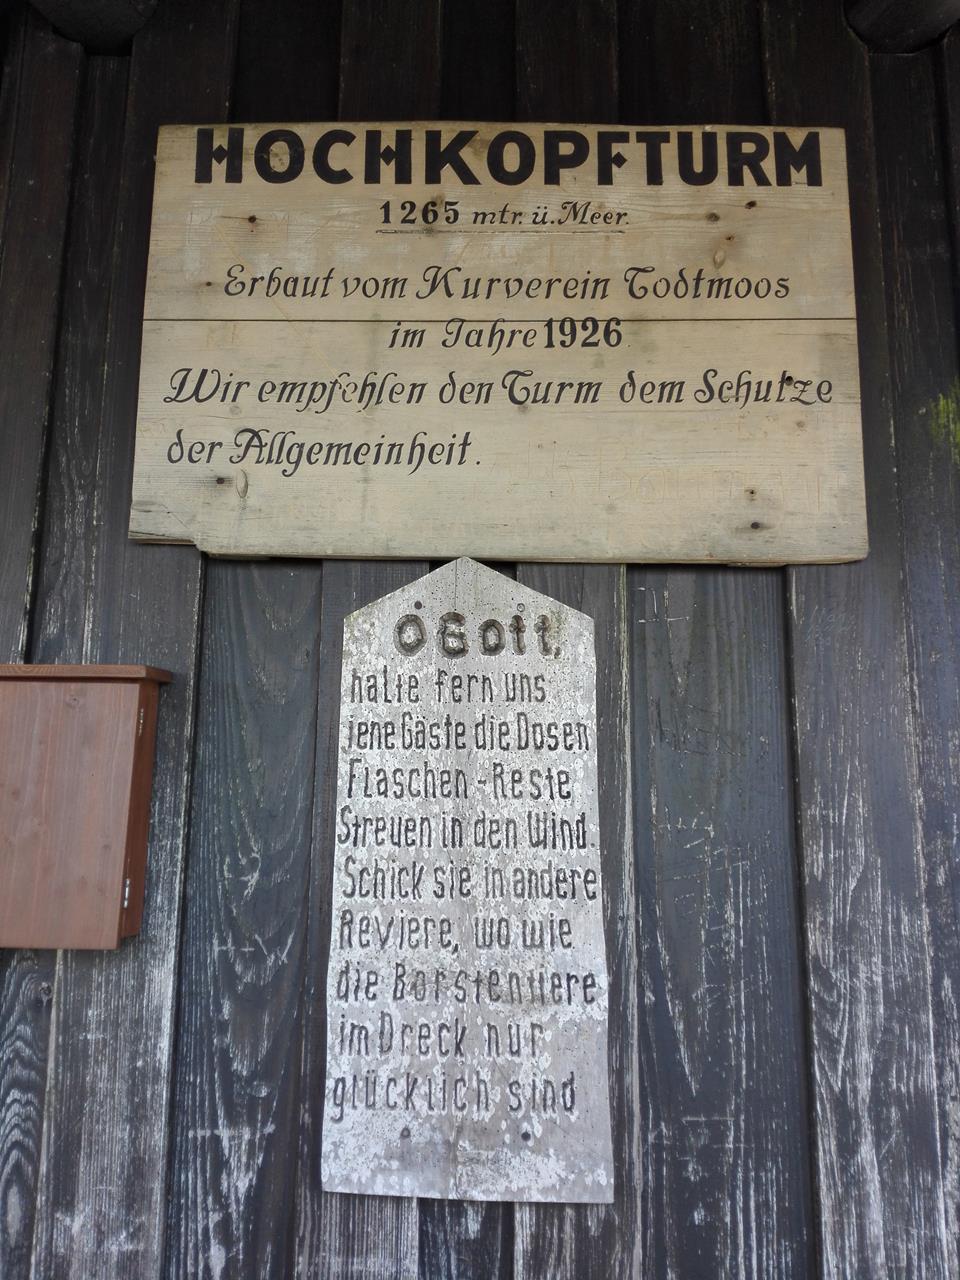 HOCHKOPFTURM
1265 mtr. ü. Meer.
Erbaut vom Kurverein Todtmoos
im Jahre 1926
Wir empfehlen den Turm dem Schutze
der Allgemeinheit.
O Gott,
halte fern uns
jene Gäste die Dosen
Flaschen - Reste
Streuen in den Wind.
Schick sie in andere
Reviere, wo wie
die Borstentiere
im Dreck nur
glücklich sind